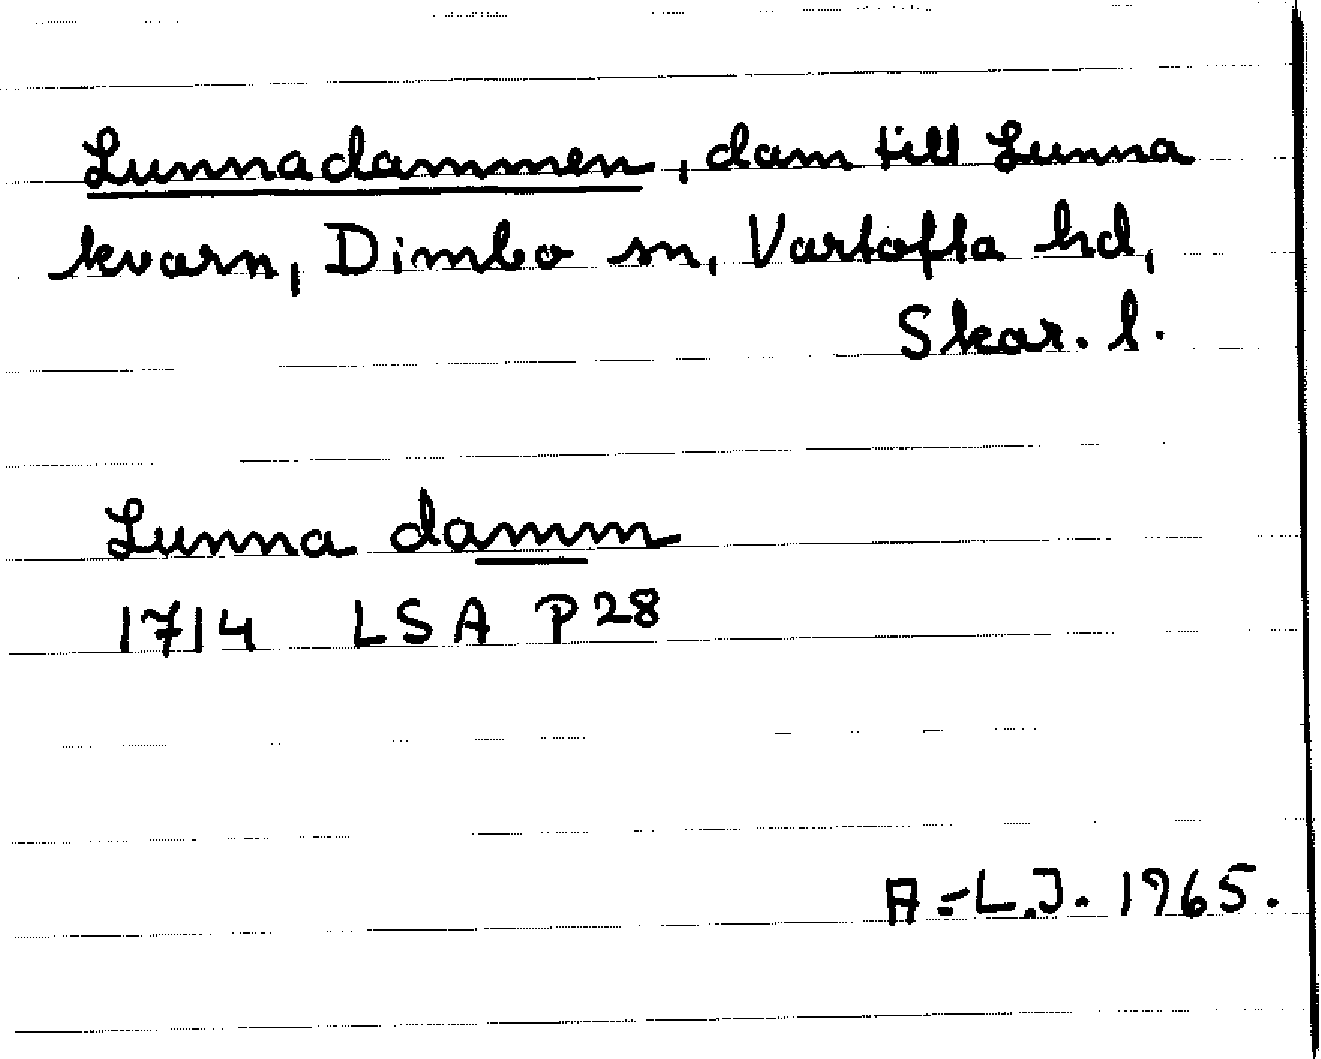 Lunnadammen, dam till Lunna
kvarn, Dimbo sn, Vartofta hd,
Skar. l.
Lunna damm
1714 LSA P28
A-L.J. 1965.